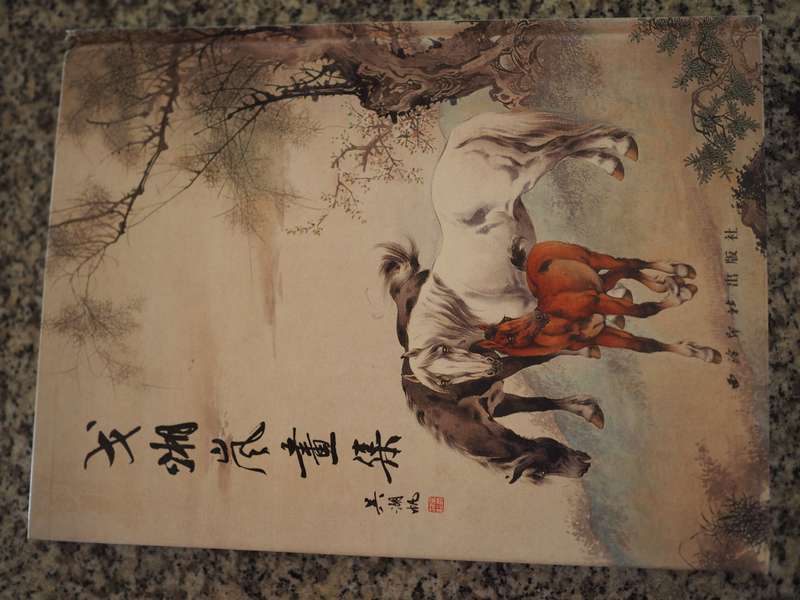 戈湘嵐畫集
吴湖帆
西泠印社出版社